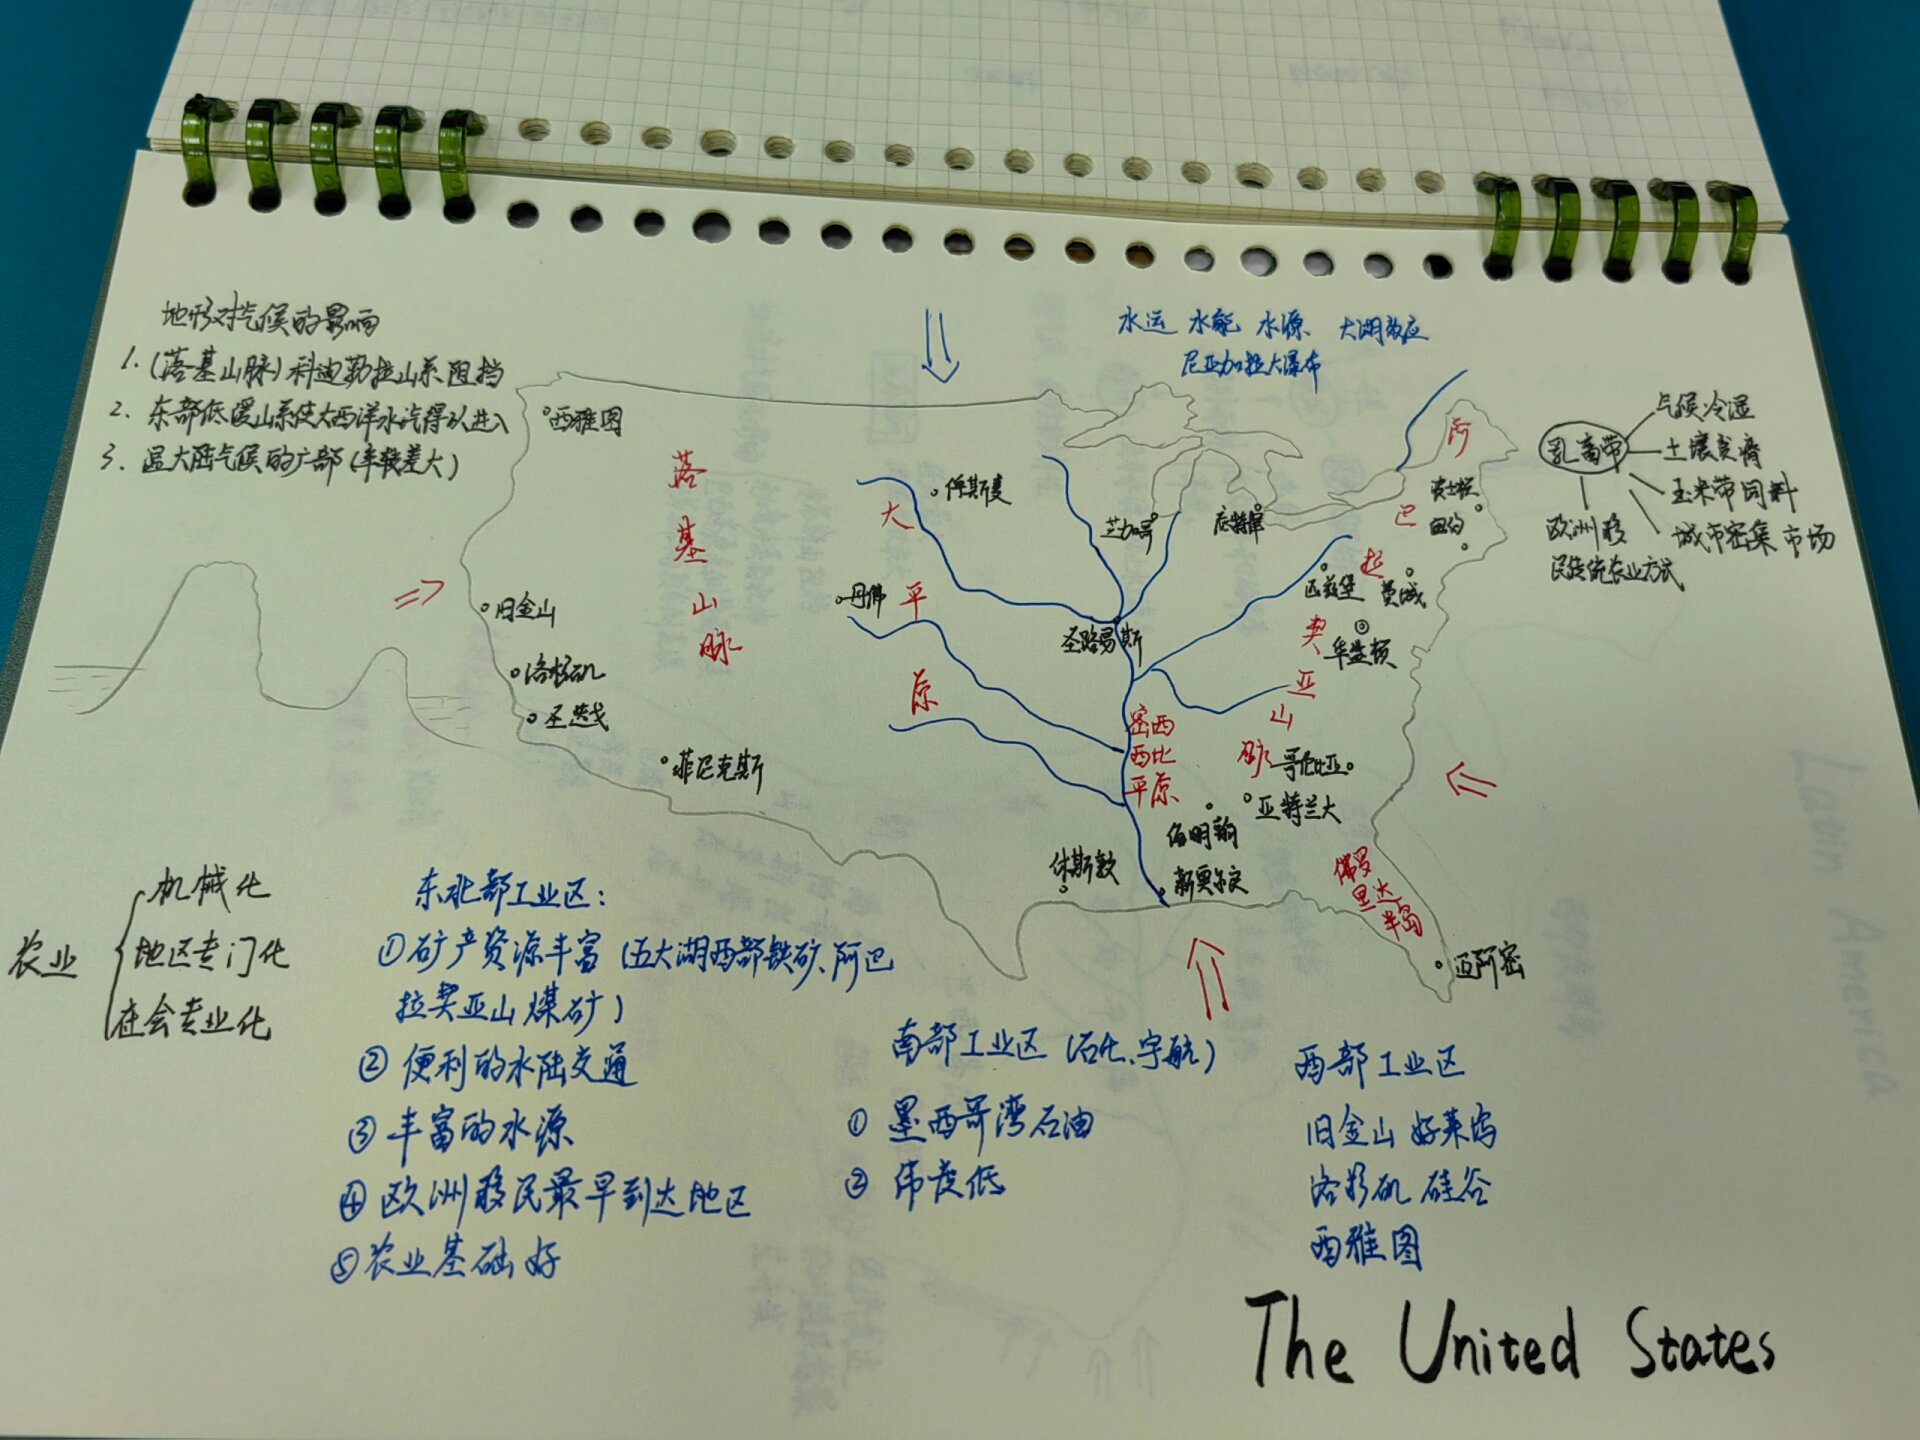 地形对气候的影响
1. (落基山脉)科迪勒拉山系阻挡
2. 东部低缓山系使大西洋水汽得以进入
3. 温大陆气候的广部(年较差大)
水运 水能 水源 大湖效应
尼亚加拉大瀑布
乳畜带
气候冷湿
土壤贫瘠
玉米带饲料
城市密集 市场
欧洲移
民传统农业方式
西雅图
旧金山
洛杉矶
圣迭戈
菲尼克斯
丹佛
俾斯麦
芝加哥
底特律
圣路易斯
波士顿
纽约
匹兹堡
费城
华盛顿
哥伦比亚
亚特兰大
伯明翰
新奥尔良
休斯敦
迈阿密
落基山脉
大平原
密西
西比
平原
阿巴拉契亚山脉
佛罗
里达
半岛
农业
机械化
地区专门化
社会专业化
东北部工业区:
①矿产资源丰富(五大湖西部铁矿、阿巴
拉契亚山煤矿)
②便利的水陆交通
③丰富的水源
④欧洲移民最早到达地区
⑤农业基础好
南部工业区(石化、宇航)
①墨西哥湾石油
②纬度低
西部工业区
旧金山 好莱坞
洛杉矶 硅谷
西雅图
The United States
Latin America